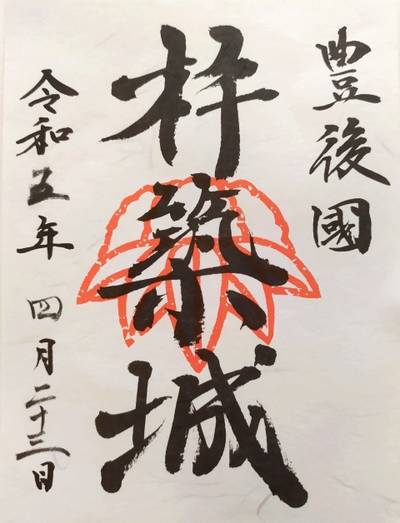 豊後國
杵築城
令和五年 四月二十三日